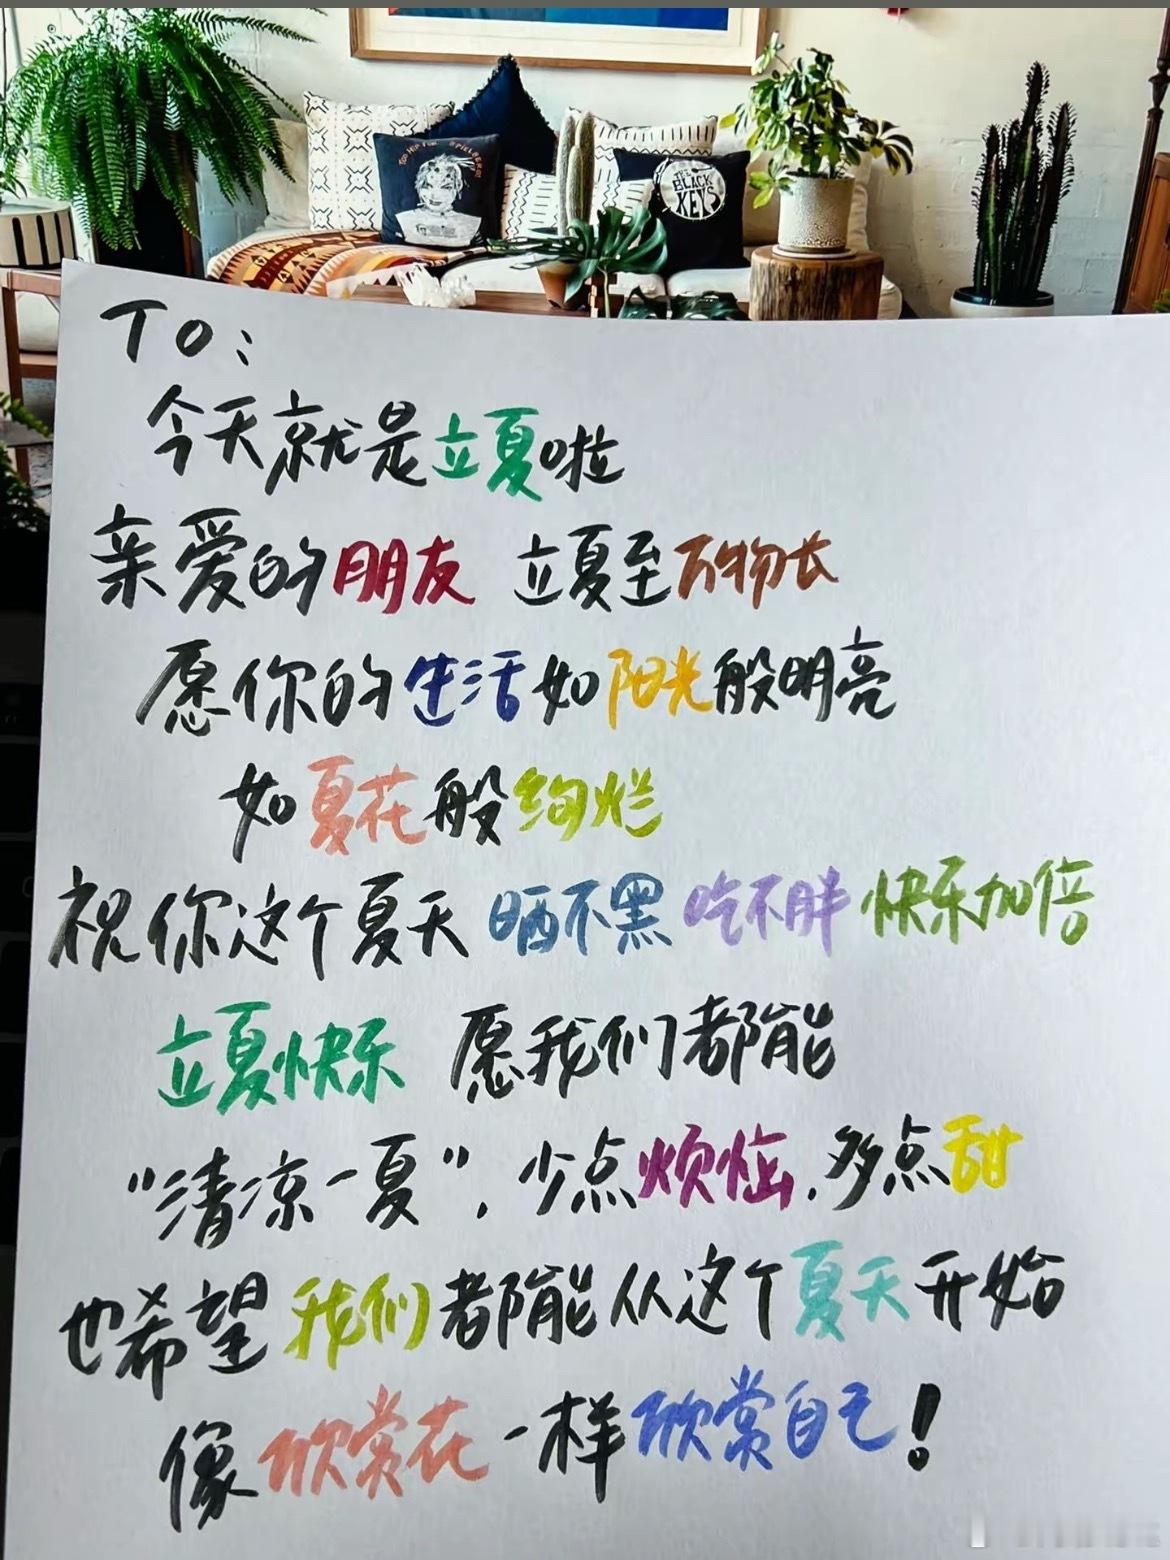 TOO HIP FOR SPIELBERG
THE BLACK KEYS
TO:
今天就是立夏啦
亲爱的朋友 立夏至万物长
愿你的生活如阳光般明亮
如夏花般绚烂
祝你这个夏天 晒不黑 吃不胖 快乐加倍
立夏快乐 愿我们都能
“清凉一夏”，少点烦恼，多点甜
也希望我们都能从这个夏天开始
像欣赏花一样欣赏自己！